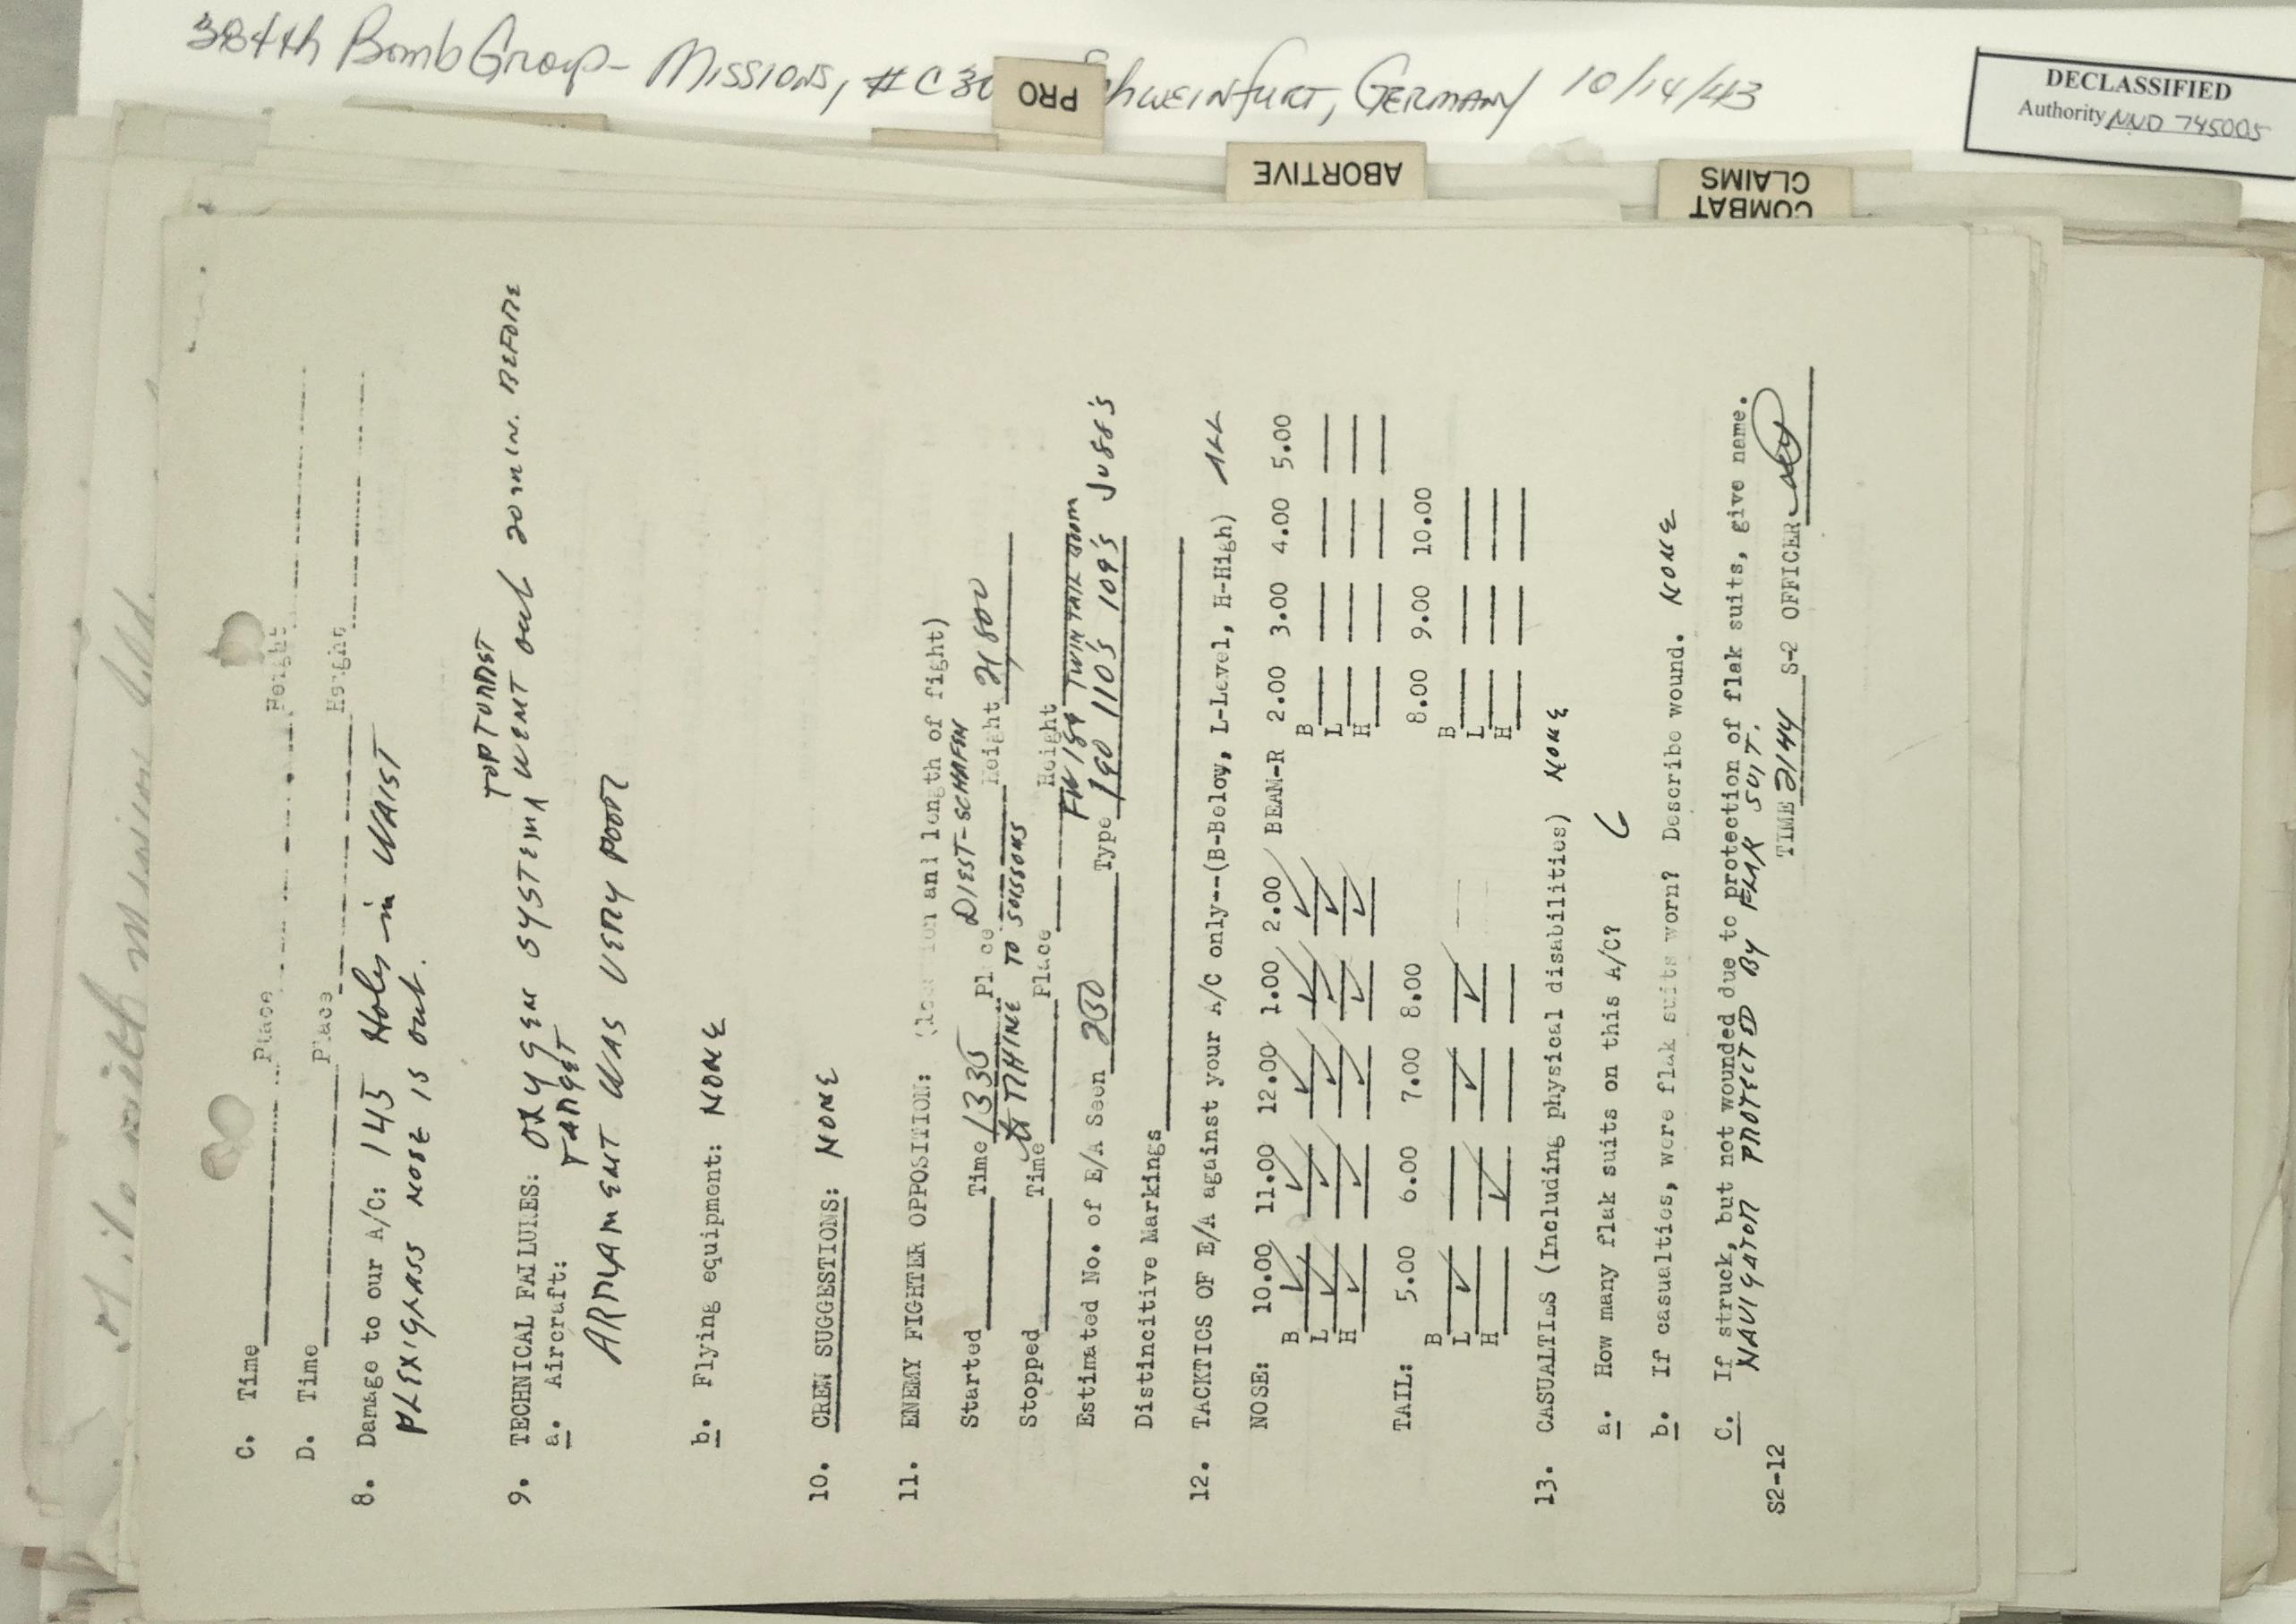 384th Bomb Group - Missions, #C30 chweinfurt, Germany 10/14/43
DECLASSIFIED
Authority NND 745005
PRO
ABORTIVE
COMBAT
CLAIMS
C. Time Place Height
D. Time Place Height
8. Damage to our A/C: 145 Holes in WAIST
PLEXIGLASS NOSE IS out.
TOP TURRET
9. TECHNICAL FAILURES: OXYGEN SYSTEM ^ WENT out 20 MIN. BEFORE
a. Aircraft: TARGET
ARMAMENT WAS VERY POOR
b. Flying equipment: NONE
10. CREW SUGGESTIONS: NONE
11. ENEMY FIGHTER OPPOSITION: (location and length of fight)
DIEST-SCHAFEN
Started Time 1335 Place Height 21,800
RHINE TO SOISSONS
Stopped Time Place Height
FW 189 TWIN TAIL BOOM
Estimated No. of E/A Seen 200 Type 190 110's 109's JU88's
Distincitive Markings
12. TACKTICS OF E/A against your A/C only--(B-Below, L-Level, H-High) ALL
NOSE: 10.00 11.00 12.00 1.00 2.00 BEAM-R 2.00 3.00 4.00 5.00
B ✓ ✓ ✓ ✓ ✓ B
L ✓ ✓ ✓ ✓ ✓ L
H ✓ ✓ ✓ ✓ ✓ H
TAIL: 5.00 6.00 7.00 8.00 8.00 9.00 10.00
B B
L ✓ ✓ ✓ L
H ✓ H
13. CASUALTIES (Including physical disabilities) NONE
a. How many flak suits on this A/C? 6
b. If casualties, were flak suits worn? Describe wound. NONE
C. If struck, but not wounded due to protection of flak suits, give name.
NAVIGATOR PROTECTED BY FLAK SUIT.
S2-12 TIME 2144 S-2 OFFICER